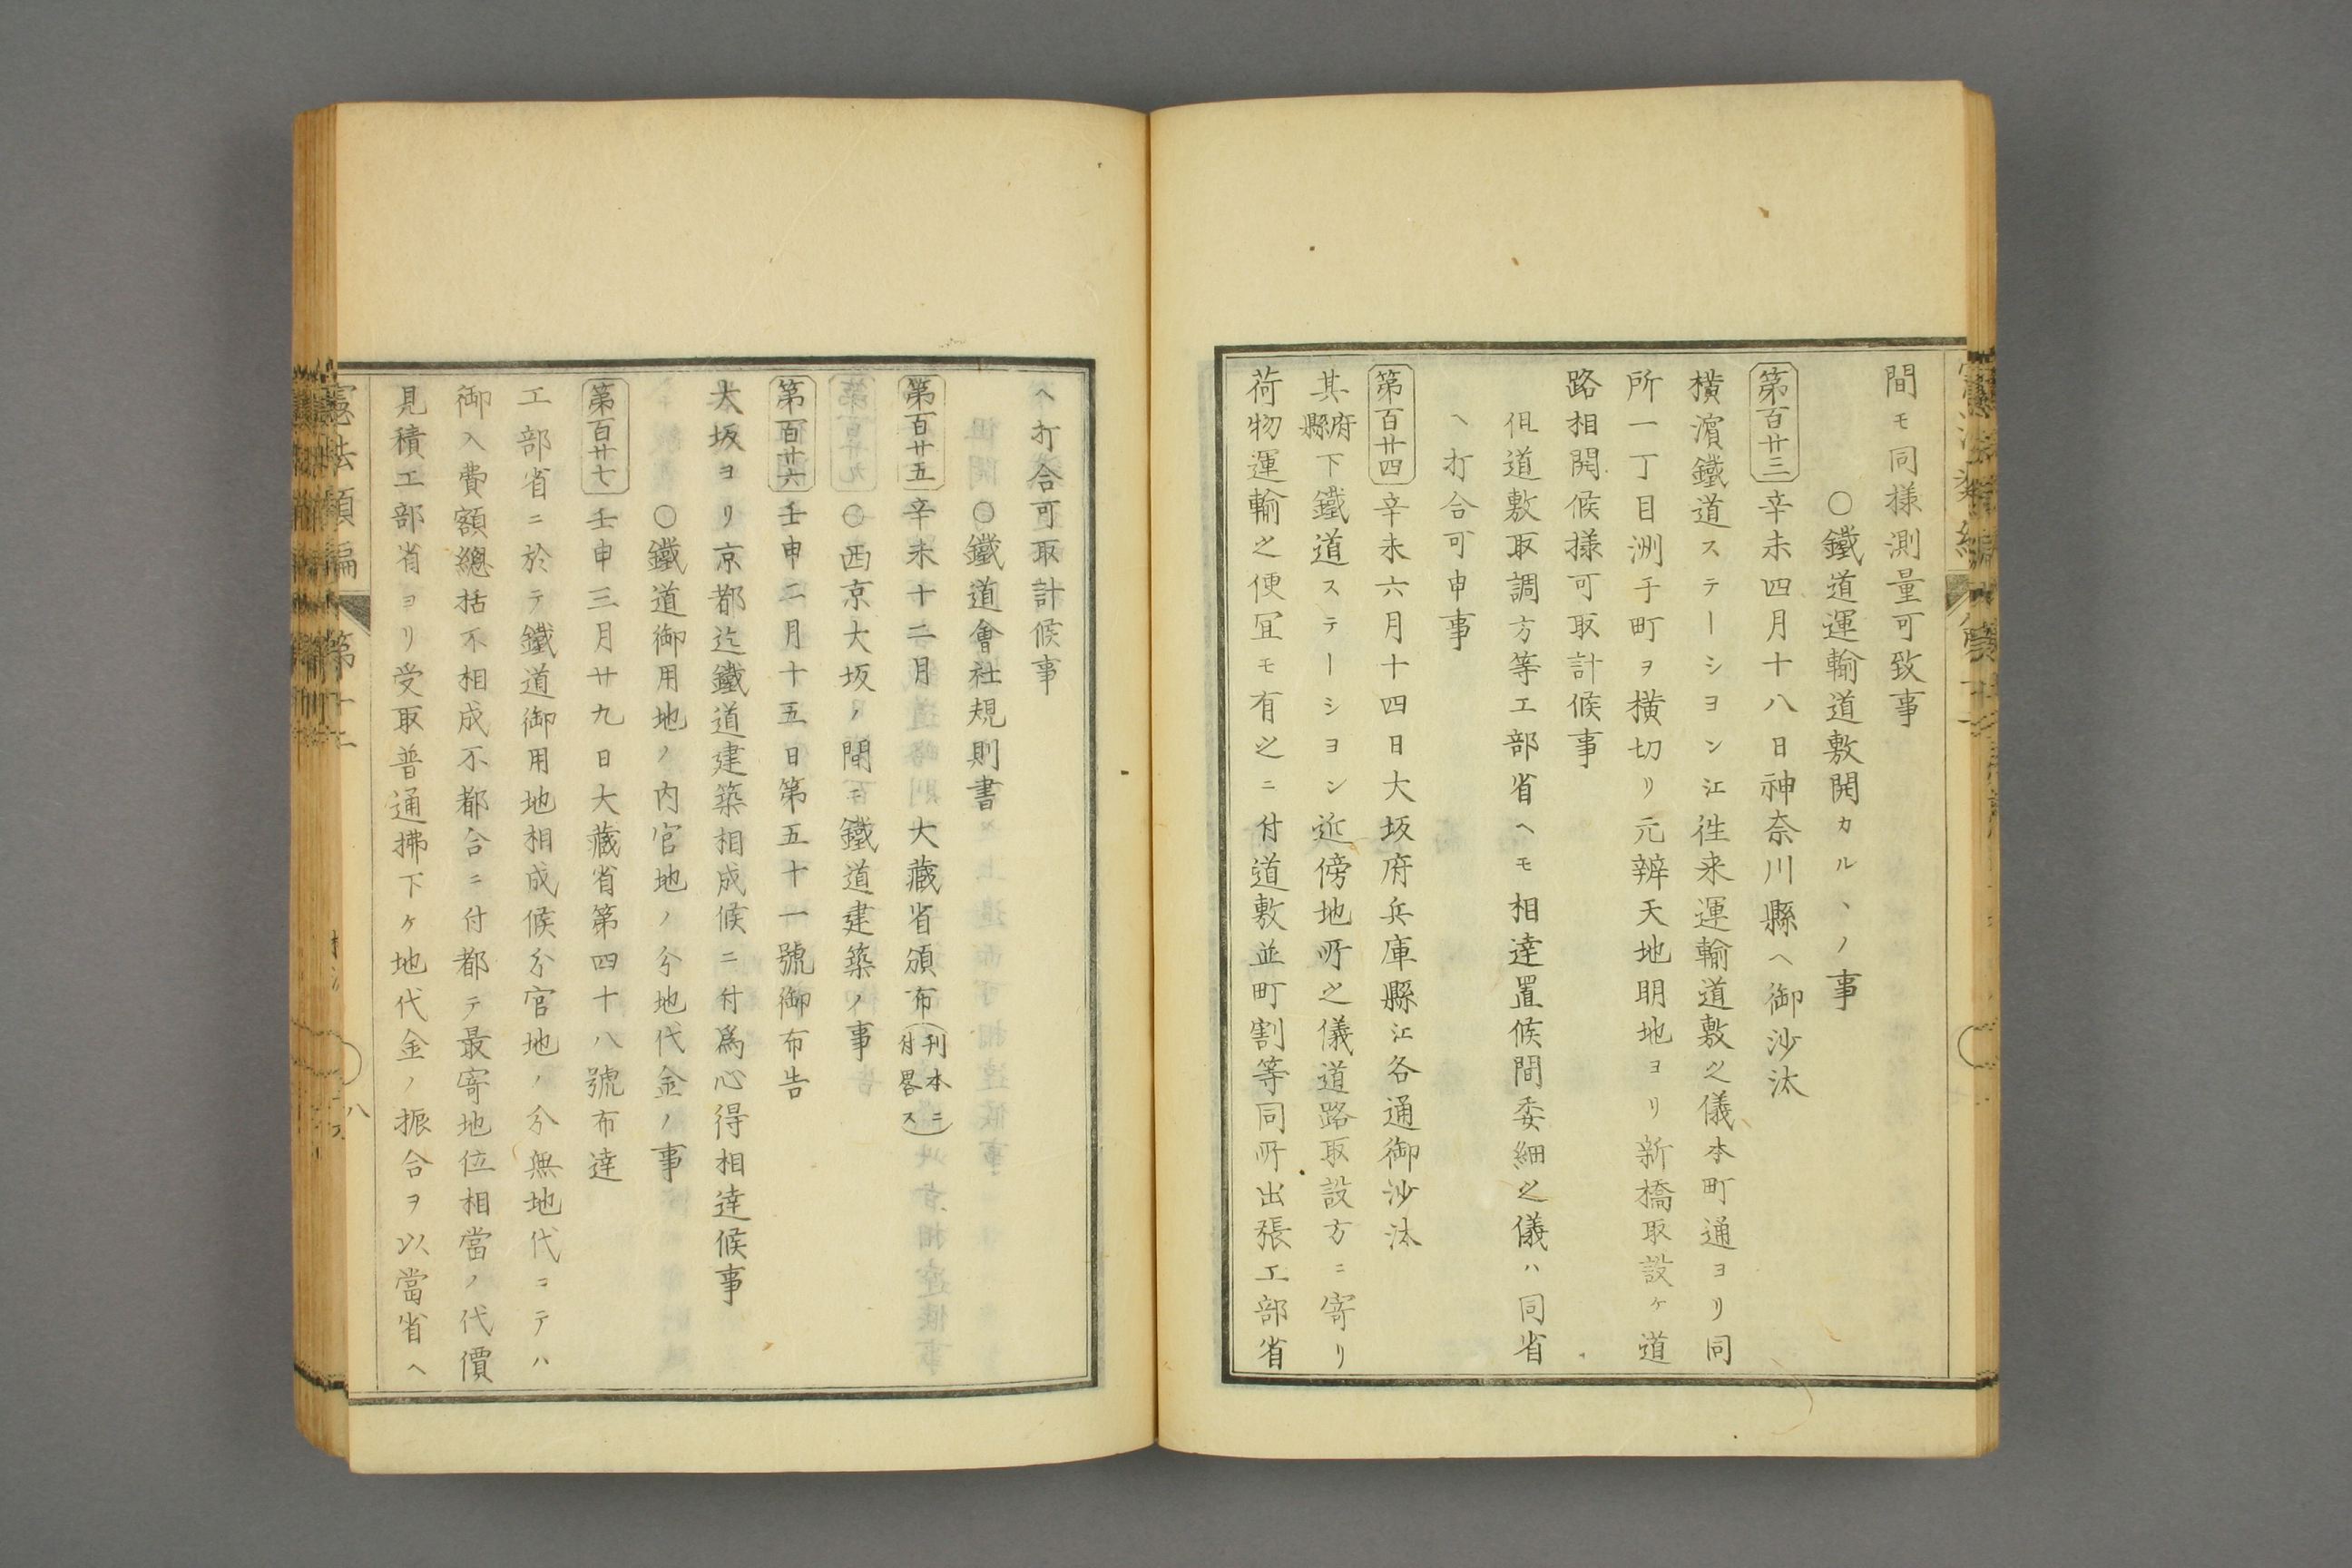 間モ同様測量可致事
○鐵道運輸道敷開カルヽノ事
第百廿三 辛未四月十八日神奈川縣ヘ御沙汰
横濵鐵道ステーシヨン江徃来運輸道敷之儀本町通ヨリ同
所一丁目洲干町ヲ横切リ元辨天地明地ヨリ新橋取設ケ道
路相開候様可取計候事
但道敷取調方等工部省ヘモ相達置候間委細之儀ハ同省
ヘ打合可申事
第百廿四 辛未六月十四日大坂府兵庫縣江各通御沙汰
其府縣下鐵道ステーシヨン近傍地所之儀道路取設方ニ寄リ
荷物運輸之便冝モ有之ニ付道敷並町割等同所出張工部省
ヘ打合可取計候事
○鐵道會社規則書
第百廿五 辛未十二月 大藏省頒布(刊本ニ付畧ス)
○西京大坂ノ間ニ鐵道建築ノ事
第百廿六 壬申二月十五日第五十一號御布告
大坂ヨリ京都迄鐵道建築相成候ニ付爲心得相達候事
○鐵道御用地ノ内官地ノ分地代金ノ事
第百廿七 壬申三月廿九日大藏省第四十八號布達
工部省ニ於テ鐵道御用地相成候分官地ノ分無地代ニテハ
御入費額總括不相成不都合ニ付都テ最寄地位相當ノ代價
見積工部省ヨリ受取普通拂下ケ地代金ノ振合ヲ以當省ヘ
憲法類編 第十二
八